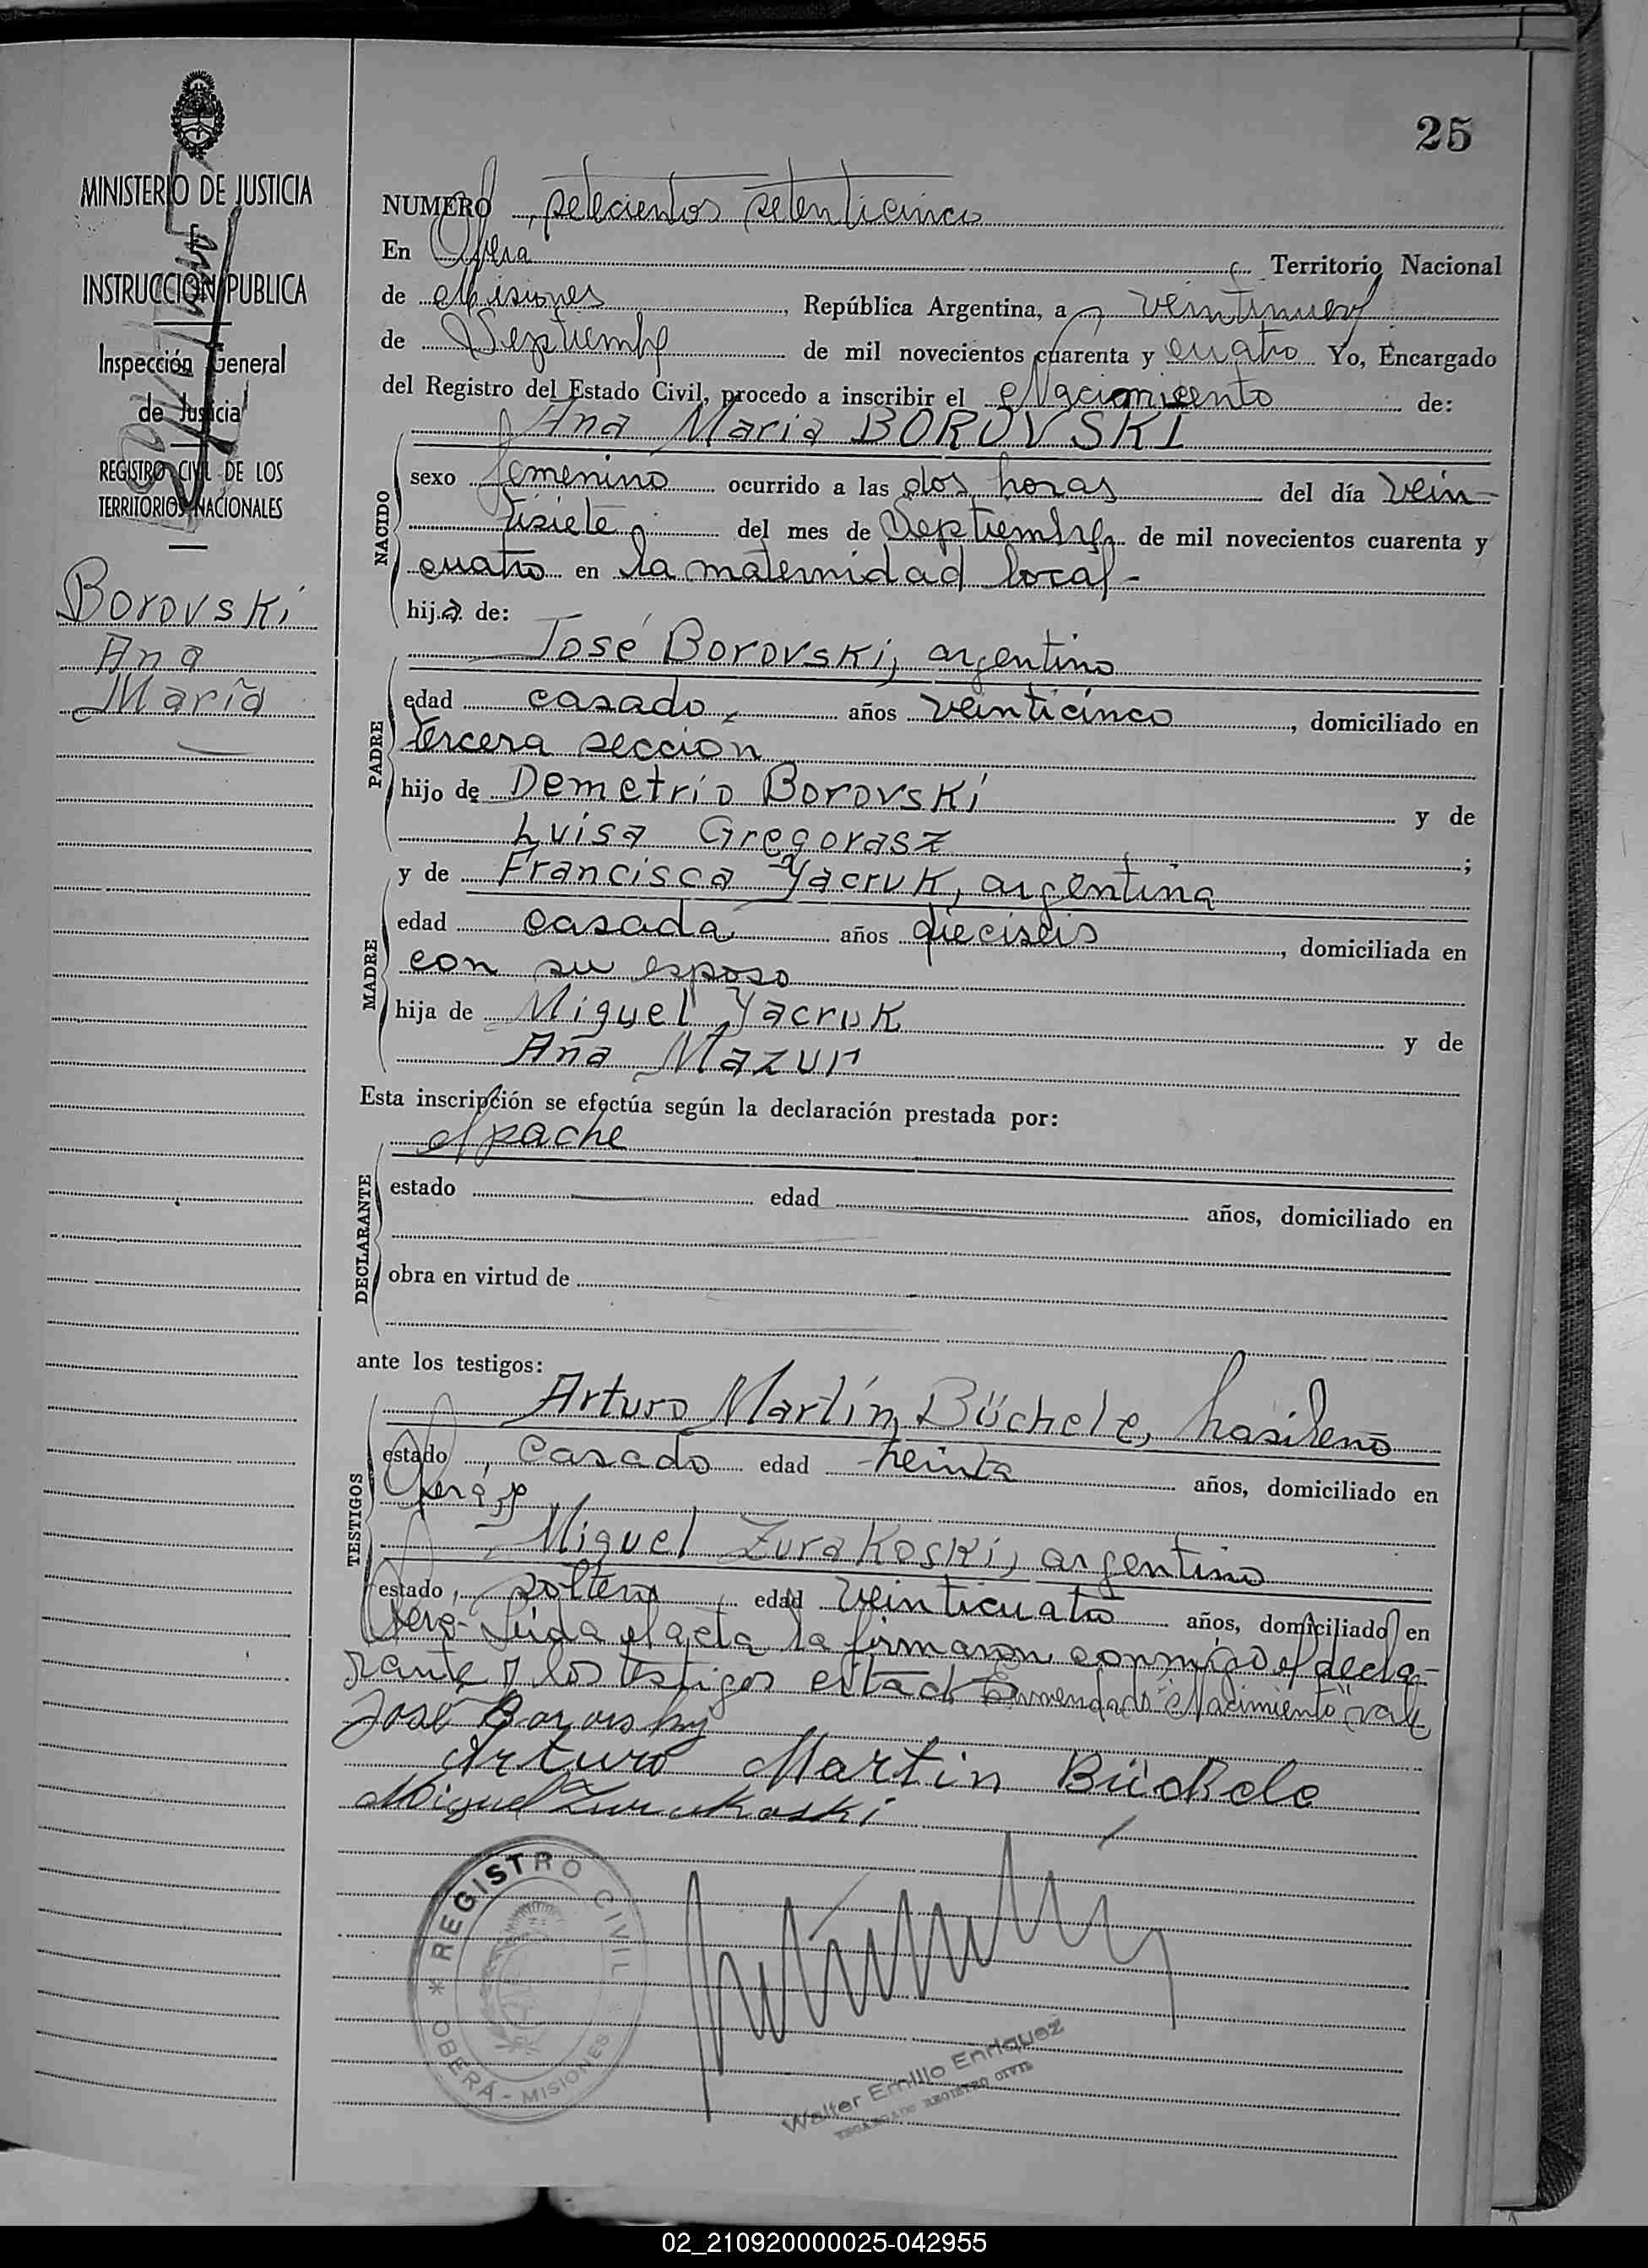 25
MINISTERIO DE JUSTICIA
INSTRUCCION PUBLICA
Inspección General
de Justicia
REGISTRO CIVIL DE LOS
TERRITORIOS NACIONALES
Borovski
Ana
María
NUMERO setecientos setenticinco
En Oberá Territorio Nacional
de Misiones, República Argentina, a veintinueve
de Septiembre de mil novecientos cuarenta y cuatro Yo, Encargado
del Registro del Estado Civil, procedo a inscribir el Nacimiento de:
Ana Maria BOROVSKI
NACIDO
sexo femenino ocurrido a las dos horas del día vein-
tisiete del mes de Septiembre de mil novecientos cuarenta y
cuatro en la maternidad local-
hija de:
José Borovski, argentino
PADRE
edad casado, años veinticinco, domiciliado en
tercera sección
hijo de Demetrio Borovski y de
Luisa Gregorasz;
y de Francisca Yacruk, argentina
MADRE
edad casada años dieciseis, domiciliada en
con su esposo
hija de Miguel Yacruk y de
Ana Mazur
Esta inscripción se efectúa según la declaración prestada por:
DECLARANTE
el pache
estado edad años, domiciliado en
obra en virtud de
ante los testigos:
TESTIGOS
Arturo Martín Büchele, brasileno
estado, casado edad treinta años, domiciliado en
Oberá, y
Miguel Zurakoski, argentino
estado, soltero edad veinticuatro años, domiciliado en
Oberá- Leida el acta la firmaron conmigo el decla-
rante y los testigos Enmendado "Nacimiento" vale
José Borovsky
Arturo Martin Büchele
Miguel Zurukoski
REGISTRO CIVIL
OBERÁ - MISIONES
Walter Emilio Enriquez
ENCARGADO REGISTRO CIVIL
02_210920000025-042955